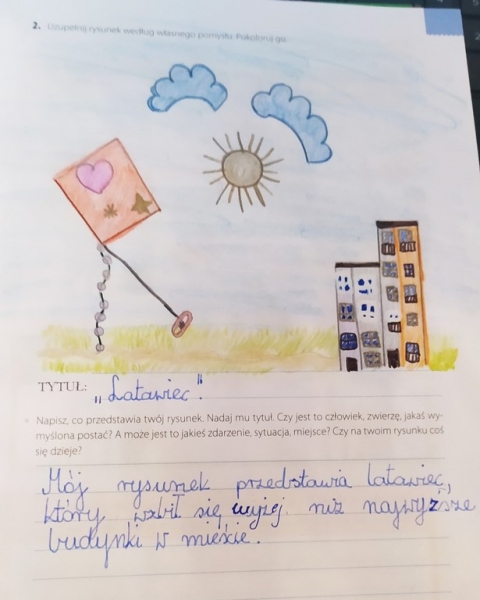 2. Uzupełnij rysunek według własnego pomysłu. Pokoloruj go.
TYTUŁ: „Latawiec".
Napisz, co przedstawia twój rysunek. Nadaj mu tytuł. Czy jest to człowiek, zwierzę, jakaś wy-
myślona postać? A może jest to jakieś zdarzenie, sytuacja, miejsce? Czy na twoim rysunku coś
się dzieje?
Mój rysunek przedstawia latawiec,
który wzbił się wyżej niż najwyższe
budynki w mieście.